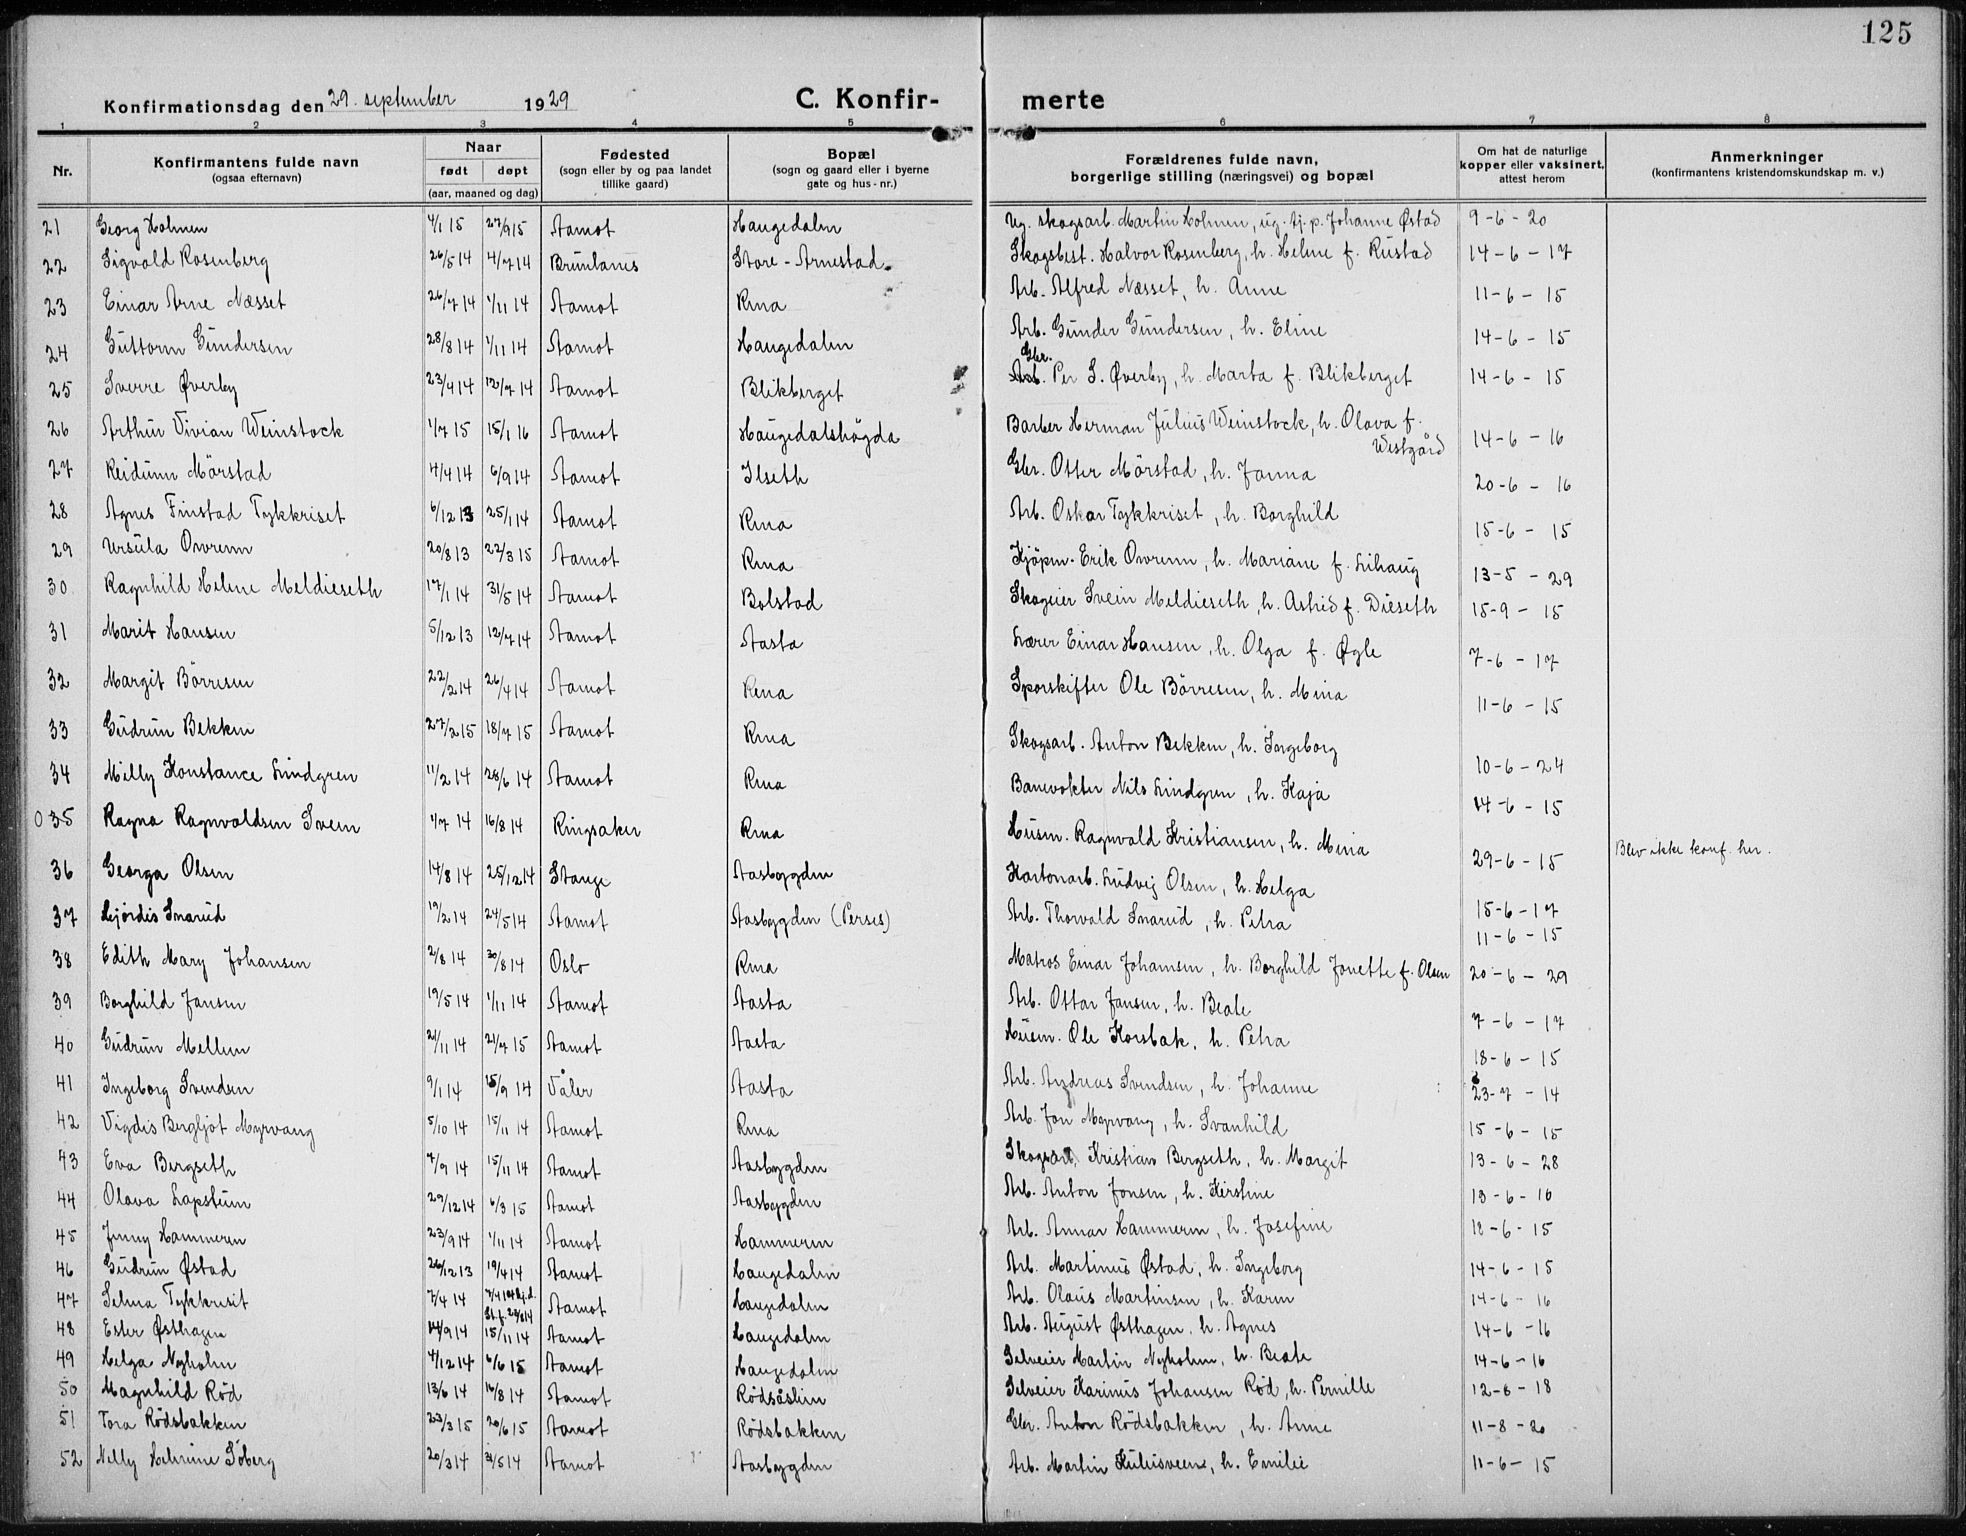 125
Konfirmationsdag den 29. september 1929 C. Konfir- merte
1 2 3 4 5 6 7 8
Nr. Konfirmantens fulde navn (ogsaa efternavn) Naar født døpt (aar, maaned og dag) Fødested (sogn eller by og paa landet tillike gaard) Bopæl (sogn og gaard eller i byerne gate og hus-nr.) Forældrenes fulde navn, borgerlige stilling (næringsvei) og bopæl Om hat de naturlige kopper eller vaksinert, attest herom Anmerkninger (konfirmantens kristendomskundskap m. v.)
21 Georg Holmen 4/1 15 27/9 15 Aamot Haugedalen Ug. skogsarb. Martin Holmen, ug. tj. p. Johanne Østad 9-6-20
22 Sigvald Rosenberg 26/5 14 4/7 14 Brunlanes Store-Arnestad. Skogsbest. Halvor Rosenberg, h. Helene f. Rustad 14-6-17
23 Einar Arne Næsset 26/7 14 1/11 14 Aamot Rena Arb. Alfred Næsset, h. Anne 11-6-15
24 Guttorm Gundersen 28/8 14 1/11 14 Aamot Haugedalen Arb. Gunder Gundersen, h. Eline 14-6-15
25 Sverre Øverby 23/4 14 12/7 14 Aamot Blikberget Gbr. Arb. Per S. Øverby, h. Marta f. Blikberget 14-6-15
26 Arthur Vivian Weinstock 1/7 15 15/1 16 Aamot Haugedalshögda Barber Herman Julius Weinstock, h. Olava f. Westgård 14-6-16
27 Reidunn Mörstad 4/4 14 6/9 14 Aamot Ilseth Gbr. Otter Mörstad, h. Janna 20-6-16
28 Agnes Finstad Tykkriset 6/12 13 25/1 14 Aamot Rena Arb. Oskar Tykkriset, h. Borghild 15-6-15
29 Ursula Ovrenn 20/8 13 22/3 15 Aamot Rena Kjöpm. Erik Ovrenn, h. Mariane f. Lihaug 13-5-29
30 Ragnhild Helene Meldieseth 17/1 14 31/5 14 Aamot Bolstad Skogeier Svein Meldieseth, h. Astrid f. Dieseth 15-9-15
31 Marit Hansen 5/12 13 12/7 14 Aamot Aasta Lærer Einar Hansen, h. Olga f. Øgle 7-6-17
32 Margit Börresen 22/2 14 26/4 14 Aamot Rena Sporskifter Ole Börresen, h. Mina 11-6-15
33 Gudrun Bekken 27/2 15 18/7 15 Aamot Rena Skogsarb. Anton Bekken, h. Ingeborg 10-6-24
34 Milly Konstance Lindgren 11/2 14 28/6 14 Aamot Rena Banevokter Nils Lindgren, h. Kaja 14-6-15
0 35 Ragna Ragnvaldsen Sveen 1/7 14 16/8 14 Ringsaker Rena Husm. Ragnvald Kristiansen, h. Mina 29-6-15 Blev ikke konf. her.
36 Georga Olsen 14/8 14 25/12 14 Stange Aasbygden Kartonarb. Ludvig Olsen, h. Helga 15-6-17
37 Hjördis Snarud 19/2 14 24/5 14 Aamot Aasbygden (Perses) Arb. Thorvald Snarud, h. Petra 11-6-15
38 Edith Mary Johansen 2/8 14 30/8 14 Oslo Rena Matros Einar Johansen, h. Borghild Jonette f. Olsen 20-6-29
39 Borghild Jansen 19/5 14 1/11 14 Aamot Aasta Arb. Ottar Jansen, h. Beate 7-6-17
40 Gudrun Mellem 21/11 14 21/7 15 Aamot Aasta Husm. Ole Korsbak, h. Petra 18-6-15
41 Ingeborg Svendsen 9/1 14 15/9 14 Våler Aasta Arb. Andreas Svendsen, h. Johanne 23-7-14
42 Vigdis Bergljot Myrvang 5/10 14 15/11 14 Aamot Rena Arb. Jon Myrvang, h. Svanhild 15-6-15
43 Eva Bergseth 7/9 14 15/11 14 Aamot Aasbygden Skogsarb. Kristian Bergseth, h. Margit 13-6-28
44 Olava Lapstuen 29/12 14 6/3 15 Aamot Aasbygden Arb. Anton Jonsen, h. Kirstine 13-6-16
45 Jenny Hammeren 23/9 14 1/11 14 Aamot Hammeren Arb. Annar Hammeren, h. Josefine 18-6-15
46 Gudrun Østad 26/12 13 19/4 14 Aamot Haugedalen Arb. Martinus Østad, h. Ingeborg 14-6-15
47 Selma Tykkriset 7/4 14 7/4 14 hj.d. St. f. 23/8 14 Aamot Haugedalen Arb. Olaus Martinsen, h. Karen 14-6-16
48 Ester Østhagen 14/9 14 15/11 14 Aamot Haugedalen Arb. August Østhagen, h. Agnes 14-6-16
49 Helga Nyholm 4/12 14 6/6 15 Aamot Haugedalen Selveier Martin Nyholm, h. Beate 14-6-16
50 Magnhild Röd 13/6 14 16/8 14 Aamot Rödsåslien Selveier Karinus Johansen Röd, h. Pernille 12-6-18
51 Tora Rödsbakken 23/3 15 20/6 15 Aamot Rödsbakken Gbr. Anton Rödsbakken, h. Anne 11-8-20
52 Nelly Helmine Söberg 20/3 14 31/5 14 Aamot Aasbygden Arb. Martin Kuliusveen, h. Emilie 11-6-15